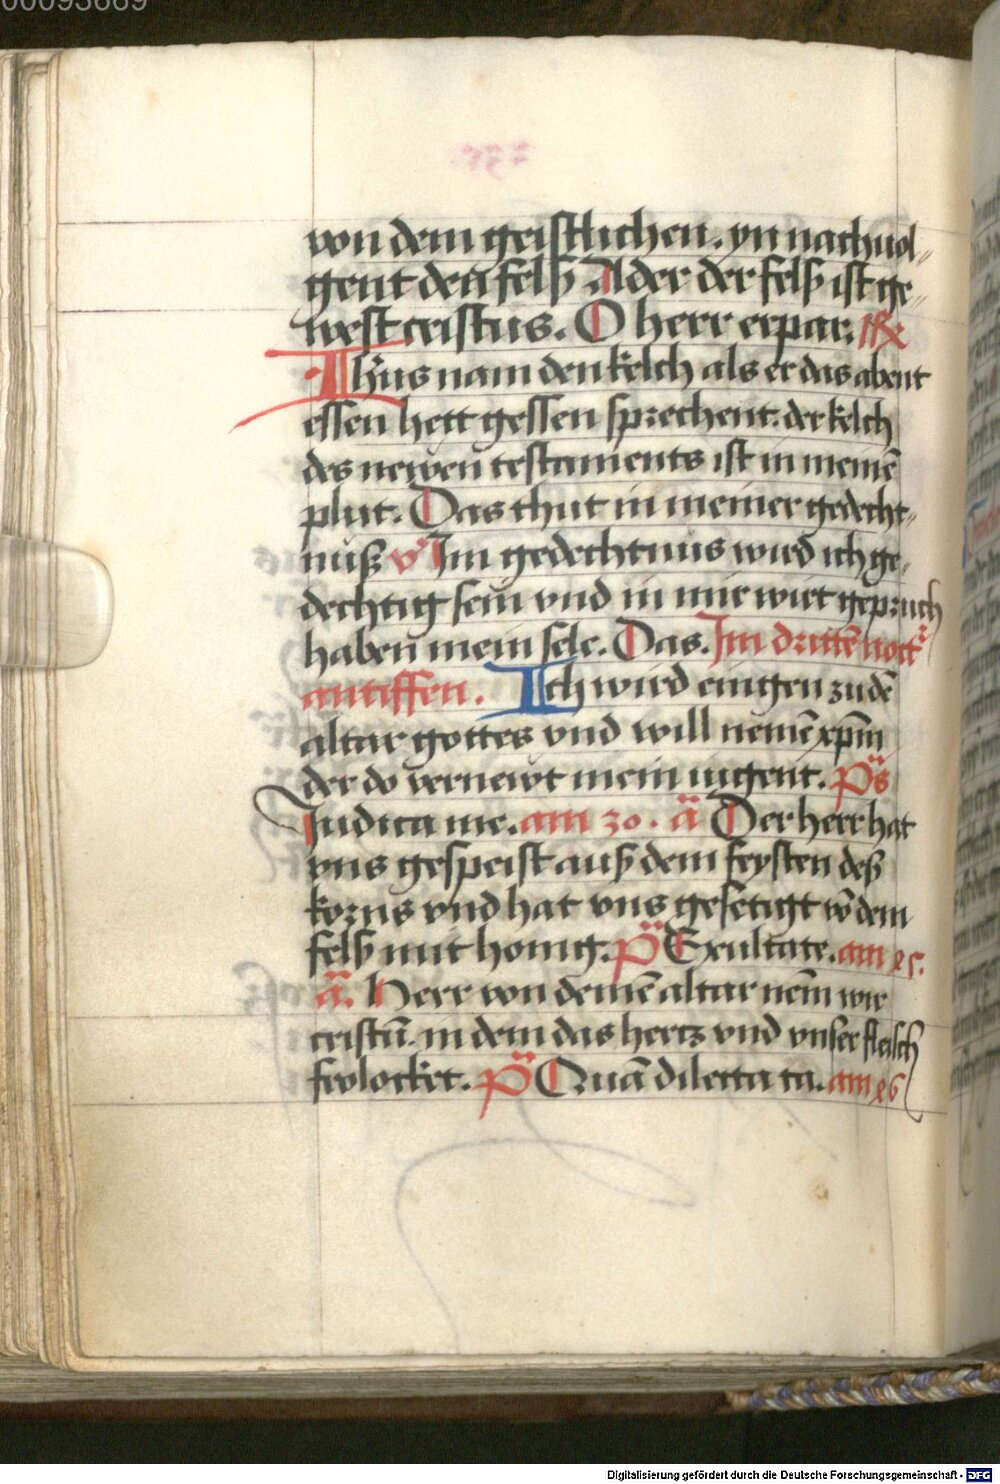 00093669
von dem geistlichen. vn nachuol„
gent den felß Alder der felß ist ge„
west cristus. O herr erpar. Rx
Ihūs nam den kelch als er das abent
essen hett gessen sprechent: der kelch
des newen testaments ist in meinē
plut. Das thut in meiner gedecht„
nüß v̓ Im gedechtnus wird ich ge„
dechtig sein vnd in mir wirt gepruch
haben mein sele. Das. Im drittē noct̾
antiffen. Ich wird eingen zu dē
altar gottes vnd will nemē xp̄m
der do vernewt mein iugent. Ps
Iudica me. am 30. ā Der herr hat
vns gespeist auß dem feysten deß
korns vnd hat vns gesetigt vō dem
felß mit honig. ps Exultate. am 85.
ā. Herr von deinē altar nēm wir
cristū. in dem das hertz vnd vnser fleisch
frolocket. ps Quā dilecta ta. am 86
Digitalisierung gefördert durch die Deutsche Forschungsgemeinschaft - DFG